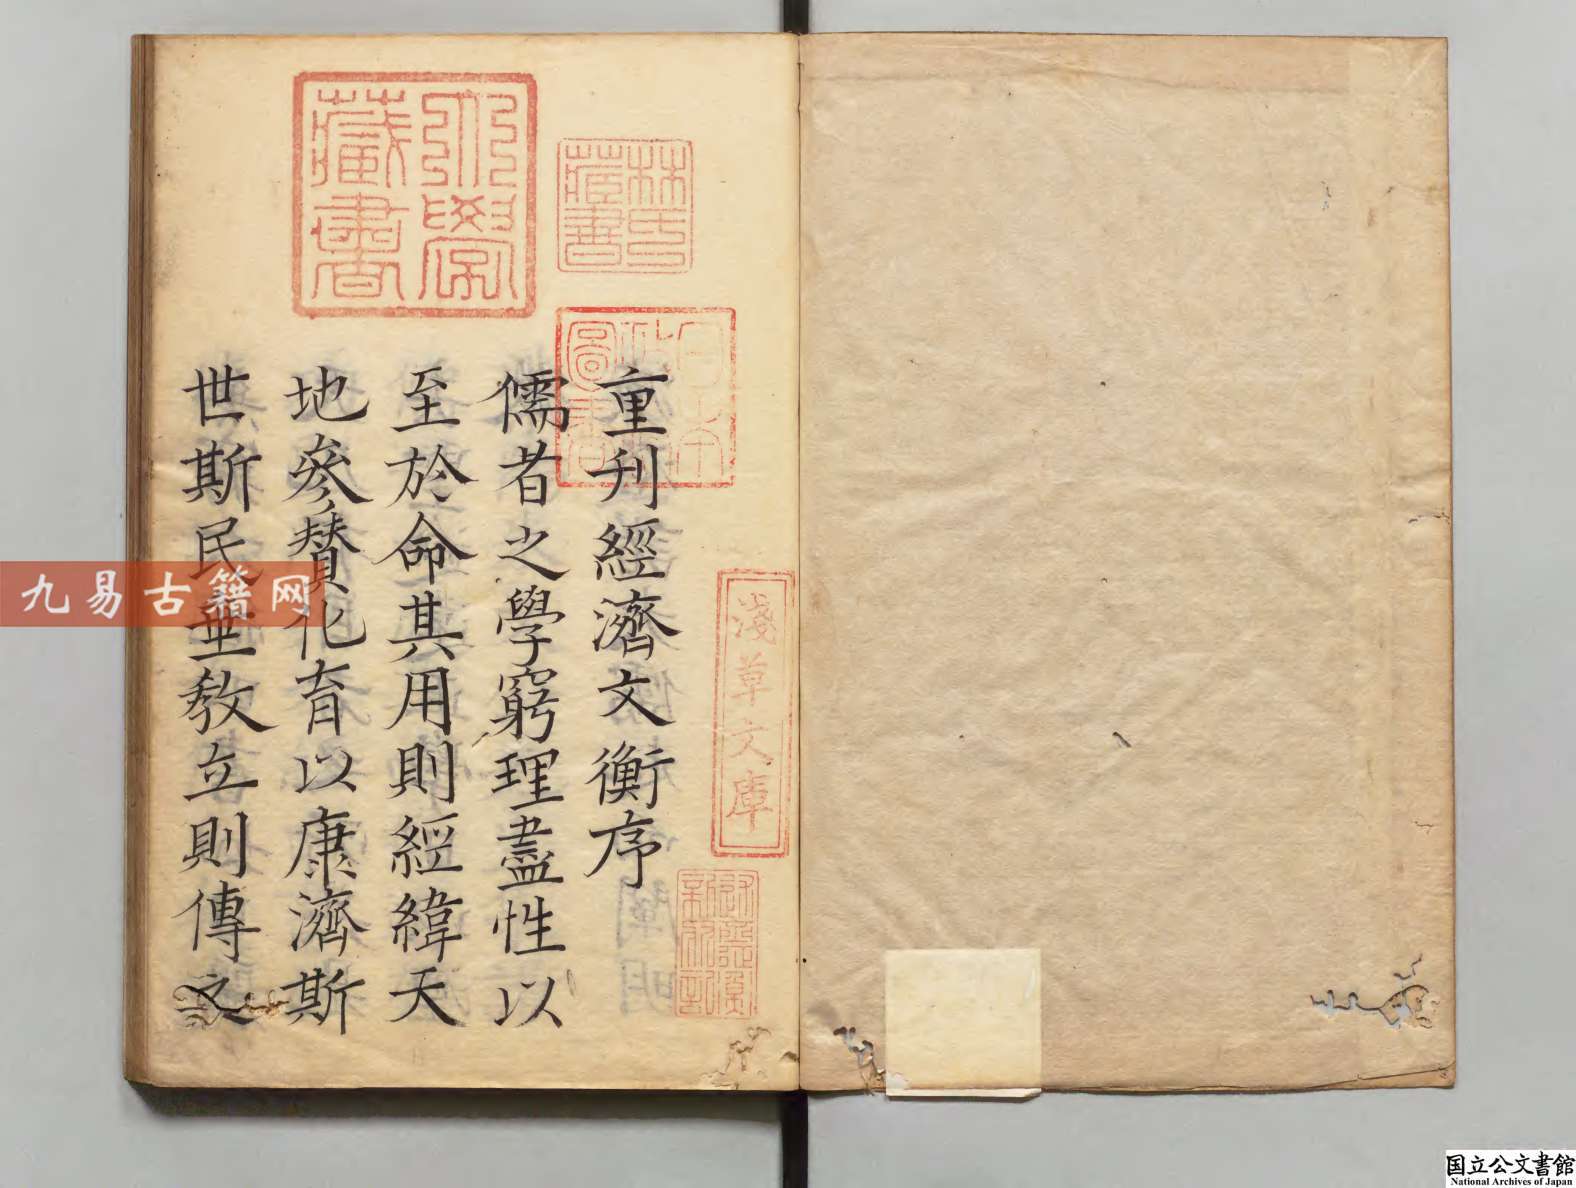 重刋經濟文衡序
儒者之學窮理盡性以
至於命其用則經緯天
地參賛化育以康濟斯
世斯民垂教立則傳之
林氏藏書
日本政圖書
淺草文庫
九易古籍网
国立公文書館
National Archives of Japan